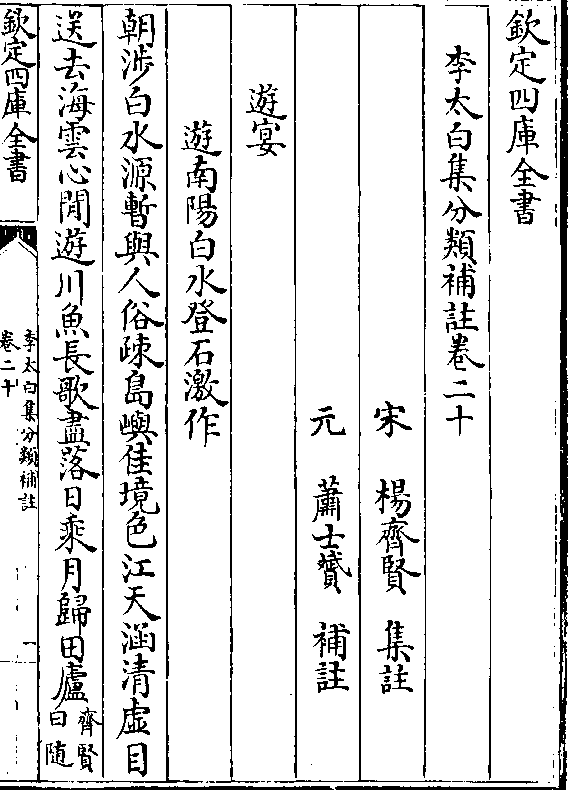 欽定四庫全書
李太白集分類補註卷二十
宋　楊齊賢　集註
元　蕭士贇　補註
遊宴
遊南陽白水登石激作
朝渉白水源暫與人俗疎島嶼佳境色江天涵清虚目
送去海雲心閒遊川魚長歌盡落日乘月歸田廬齊賢曰随
欽定四庫全書
李太白集分類補註
卷二十
一